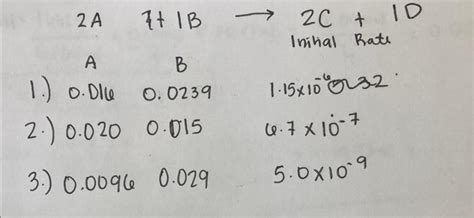 2A + 1B → 2C + 1D
Initial Rate
A B
1.) 0.016 0.0239 1.15x10⁻⁶
2.) 0.020 0.015 6.7 x 10⁻⁷
3.) 0.0096 0.029 5.0x10⁻⁹